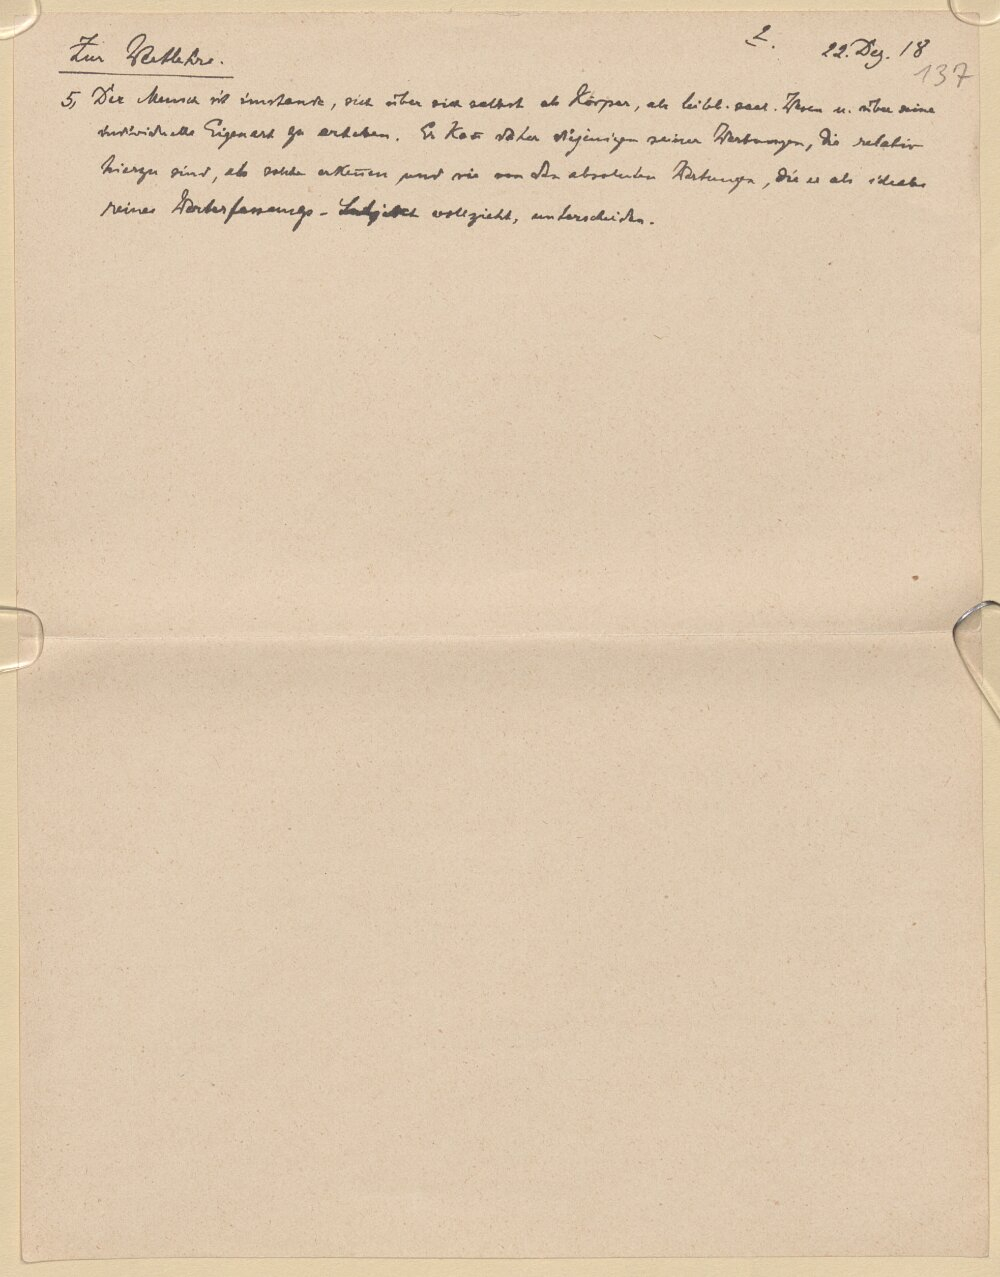 Zur Wertlehre.
2.
22. Dez. 18
137
5, Der Mensch ist imstande, sich über sich selbst als Körper, als leibl. seel. Wesen u. über seine
individuelle Eigenart zu erheben. Er kan̅ daher diejenigen seiner Wertungen, die relativ
hierzu sind, als solche erken̅en und sie von den absoluten Wertungen, die er als ideales
reines Werterfassungs-Subjekt vollzieht, unterscheiden.